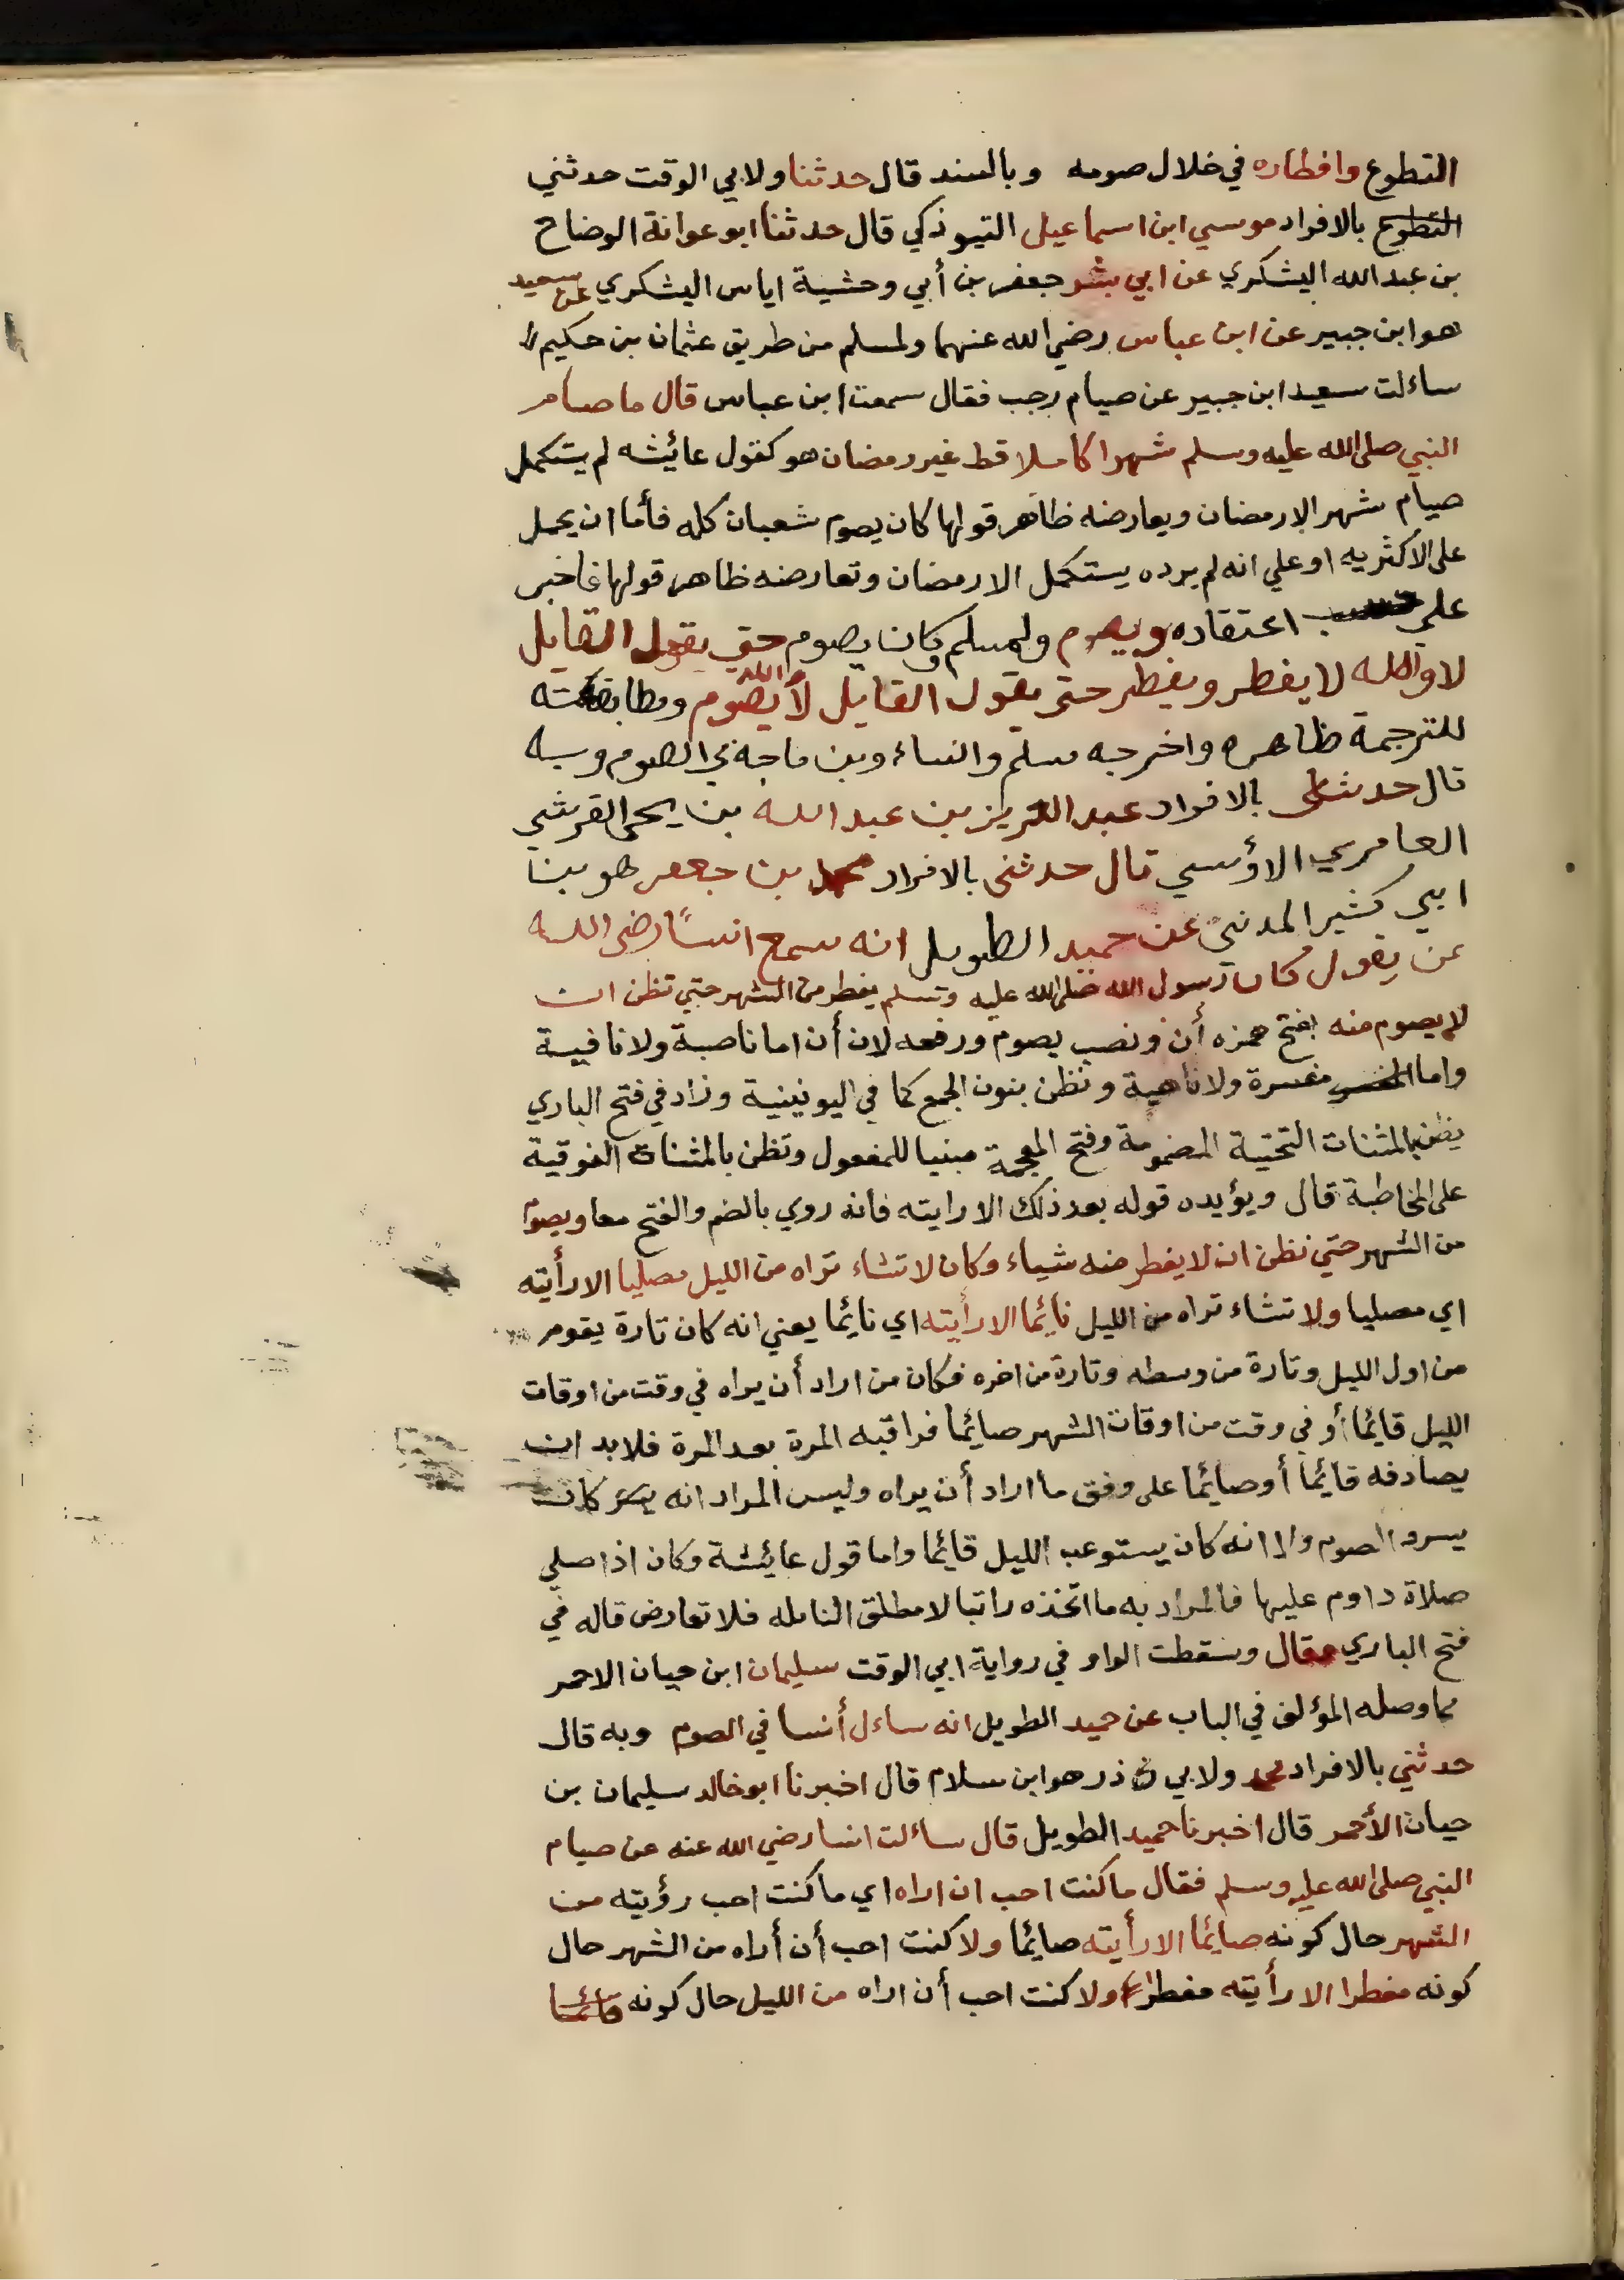 التطوع وافطاره في خلال صومه وبالسند قال حدثنا ولابي الوقت حدثني
التطوع بالافراد موسي ابن اسماعيل التبوذكي قال حدثنا ابو عوانة الوضاح
بن عبد الله اليشكري عن ابي بشر جعفر بن أبي وحشية اياس اليشكري عن سعيد
هو ابن جبير عن ابن عباس رضي الله عنهما ولمسلم من طريق عثمان بن حكيم
ساءلت سعيد ابن جبير عن صيام رجب فقال سمعت ابن عباس قال ما صام
النبي صلى الله عليه وسلم شهرا كاملا قط غير رمضان هو كقول عائيشه لم يستكمل
صيام شهر الارمضان ويعارضه ظاهر قولها كان يصوم شعبان كله فأما ان يحمل
على الاكثريه او علي انه لم يرده يستكمل الا رمضان وتعارضه ظاهر قولها فاخبر
علي حسب اعتقاده ويصوم ولمسلم وكان يصوم حتى يقول القايل
لا والله لا يفطر ويفطر حتى يقول القايل لا والله لا يصوم ومطابقته
للترجمة ظاهره واخرجه مسلم والنساء وبن ماجة في الصوم وبه
قال حدثني بالافراد عبد العزيز بن عبد الله بن يحى القرشي
العامري الاؤسي قال حدثنى بالافراد محمد بن جعفر هو بن
ابي كثير المدني عن حميد الطويل انه سمع انسًا رضى الله
عن يقول كان رسول الله صلى الله عليه وسلم يفطر من الشهر حتي نظن ان
لا يصوم منه بفتح همزه أن ونصب يصوم ورفعه لان أن اما ناصبة ولا نافية
واما مفسرة ولا ناهية ونظن بنون الجمع كما في اليونينية وزاد في فتح الباري
يظن بالمثنات التحتية المضمومة وفتح المعجمة مبنيا للمفعول وتظن بالمثنات الفوقية
على المخاطبة قال ويؤيده قوله بعد ذلك الا رايته فانه روي بالضم والفتح معا ويصوم
من الشهر حتي نظن ان لا يفطر منه شياء وكان لا تشاء تراه من الليل مصليا الا رأيته
اي مصليا ولا تشاء تراه من الليل نائما الا رأيته اي نايما يعني انه كان تارة يقوم
من اول الليل وتارة من وسطه وتارة من اخره فكان من اراد أن يراه في وقت من اوقات
الليل قايما أو في وقت من اوقات الشهر صايما فراقبه المرة بعد المرة فلا بد ان
يصادفه قايما أو صايما على وفق ما اراد أن يراه وليس المراد انه كان
يسرد الصوم والا انه كان يستوعب الليل قائما واما قول عائيشة وكان اذا صلي
صلاة داوم عليها فالمراد به ما اتخذه راتبا لا مطلق النافله فلا تعارض قاله في
فتح الباري وقال وسقطت الواو في رواية ابي الوقت سليمان ابن حيان الاحمر
مما وصله المؤلف في الباب عن حميد الطويل انه ساءل أنسا في الصوم وبه قال
حدثني بالافراد محمد ولابي ذر هو ابن سلام قال اخبرنا ابو خالد سليمان بن
حيان الأحمر قال اخبرنا حميد الطويل قال ساءلت انسا رضي الله عنه عن صيام
النبي صلى الله عليه وسلم فقال ما كنت احب ان اراه اي ما كنت احب رؤيته من
الشهر حال كونه صايما الا رأيته صايما ولا كنت احب أن أراه من الشهر حال
كونه مفطرا الا رأيته مفطرا ولا كنت احب أن اراه من الليل حال كونه قائما